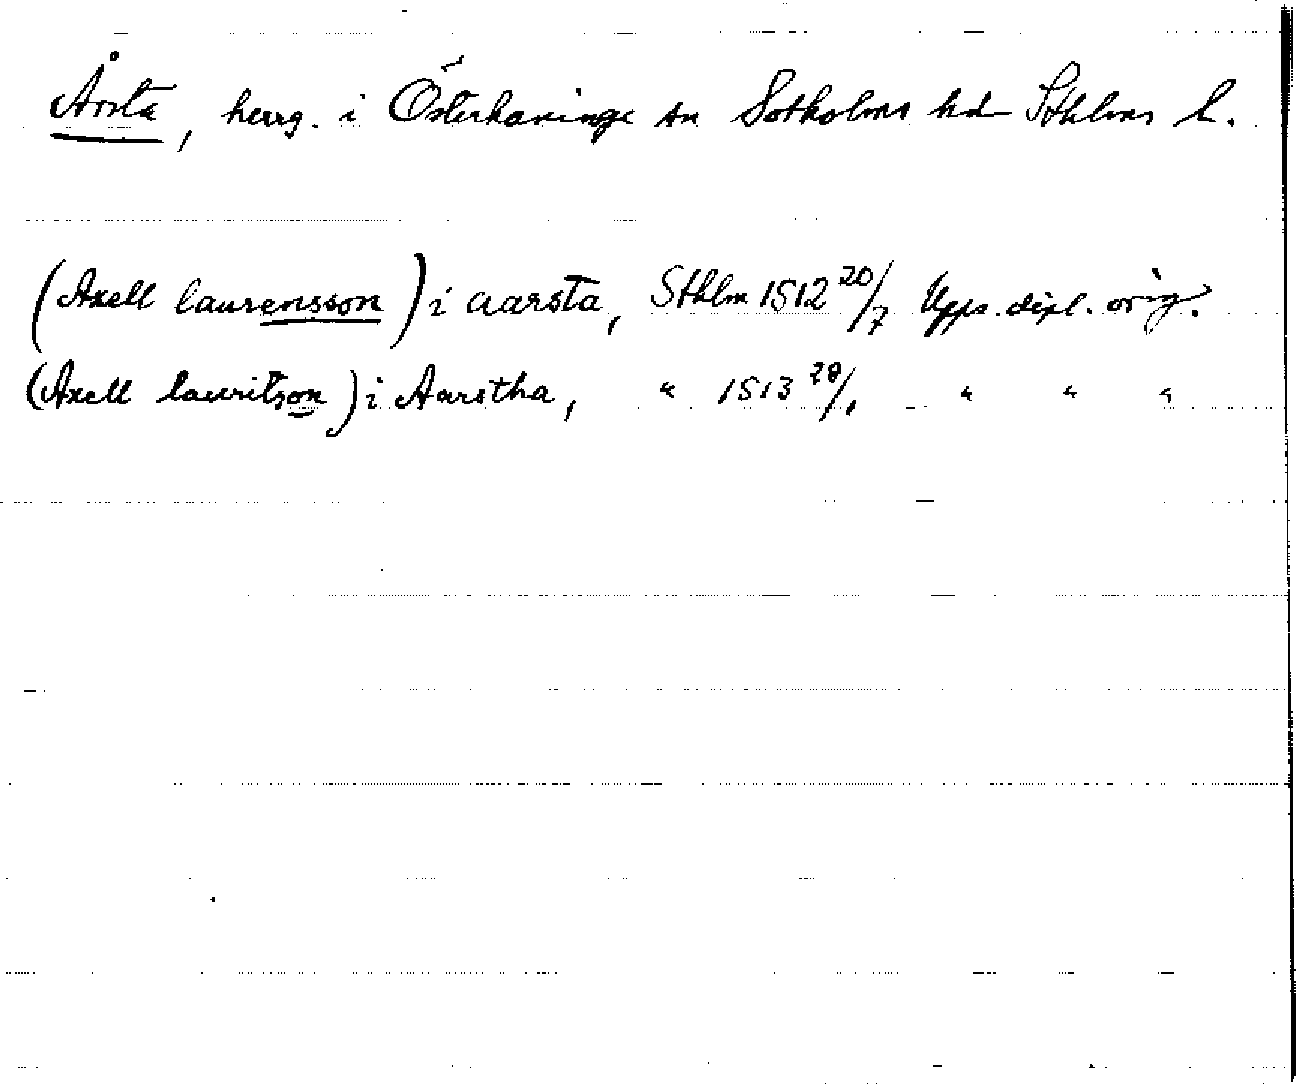 Årsta, herrg. i Österhaninge sn Sotholms hd Sthlms l.
(Axell laurensson) i aarsta, Sthlm 1512 20/7 Upps. dipl. orig.
(Axell lauritson) i Aarstha, " 1513 28/1 " " "